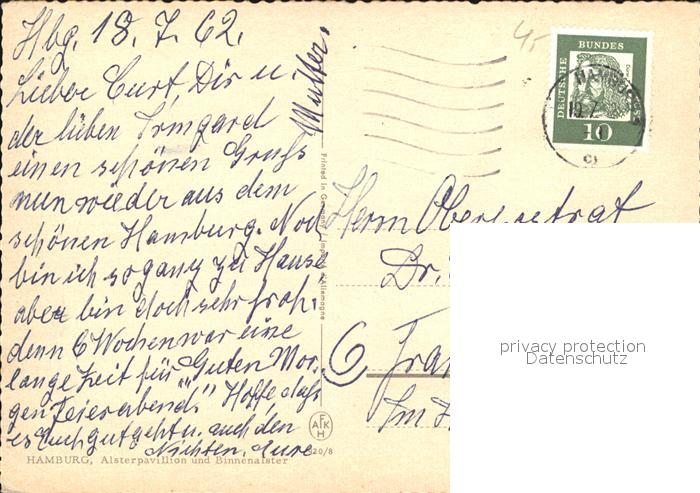 Hbg. 18. 7. 62.
Lieber Curt, Dir u.
der lieben Irmgard
einen schönen Gruß
nun wieder aus dem
schönen Hamburg. Noch
bin ich so ganz zu Hause
aber bin doch sehr froh,
denn 6 Wochen war eine
lange Zeit für "Guten Mor-
gen Feierabend." Hoffe, daß
es Euch gut geht u. auch den
Eure
Mutter.
HAMBURG, Alsterpavillion und Binnenalster
Printed in Germany
Allemagne
AFKH
20/8
45
DEUTSCHE BUNDES
10
HAMBURG
19. 7.
c
Herrn
Dr.
6 Fran
Im
privacy protection
Datenschutz